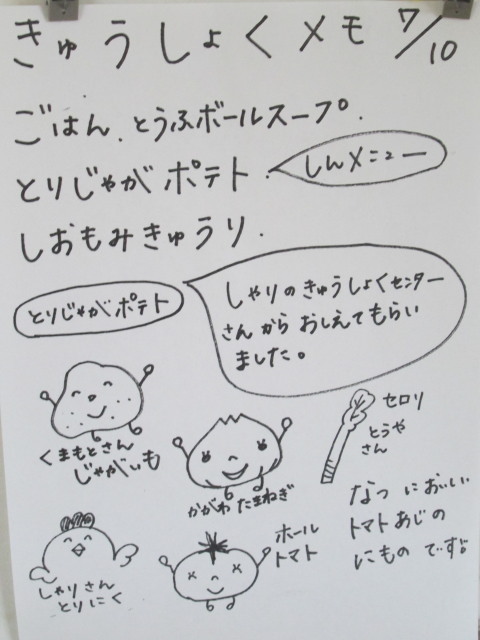 きゅうしょくメモ 7/10
ごはん、とうふボールスープ、
とりじゃがポテト、
しんメニュー
しおもみきゅうり、
とりじゃがポテト
しゃりのきゅうしょくセンター
さんからおしえてもらい
ました。
くまもとさん
じゃがいも
かがわたまねぎ
セロリ
とうや
さん
しゃりさん
とりにく
ホール
トマト
なつにおいしい
トマトあじの
にものです。